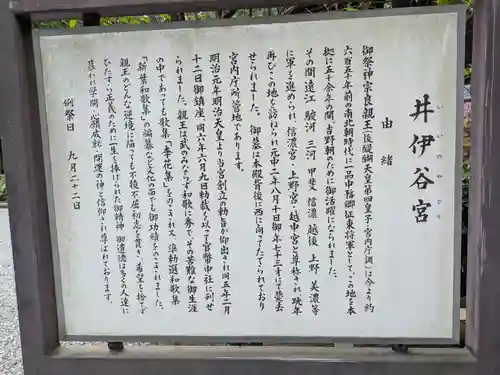 井伊谷宮
いいのやぐう
由緒
御祭神宗良親王(後醍醐天皇第四皇子・宮内庁調)は今より約
六百五十年前の南北朝時代に一品中務卿征東将軍として、この地を本
拠に五十余年の間、吉野朝のために御活躍になられました。
その間遠江 駿河 三河 甲斐 信濃 越後 上野 美濃等
に軍を進められ、信濃宮・上野宮・越中宮と尊称され、晩年
再びこの地を訪ねられ元中二年八月十日御年七十三才にて薨去
せられました。御墓は本殿背後に西に向ってたてられており
宮内庁所管地であります。
明治元年明治天皇より当宮創立の勅旨が仰出され同五年二月
十二日御鎮座、同六年六月九日勅裁を以って官幣中社に列せ
られました。親王は武のみならず和歌に秀で、その苦難な御生涯
の中であっても歌集「李花集」をのこされ又、准勅選和歌集
「新葉和歌集」の編纂など文の面でも御功績をのこされました。
親王のどんな逆境に陥っても不撓不屈、初志を貫き、希望を捨てず
ひたすら正義のために一生を捧げられた御精神、御遺徳は多くの人達に
慕われ学問、心願成就、開運の神と信仰され尊ばれております。
例祭日 九月二十二日